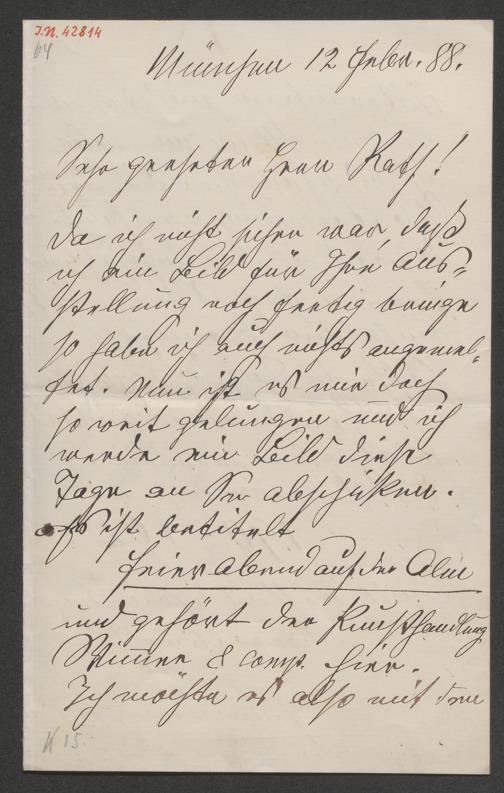 I.N. 42814
64
München 12 Febr. 88.
Sehr geehrter Herr Rath!
Da ich nicht sicher war, daß
ich ein Bild für Ihre Aus-
stellung noch fertig bringe
so habe ich auch nichts angemel-
det. Nun ist es mir doch
so weit gelungen und ich
werde ein Bild diese
Tage an Sie abschiken.
Es ist betitelt
Feierabend auf der Alm
und gehört der Kunsthandlung
Wimmer & comp. hier.
Ich möchte es also mit dem
K 15.